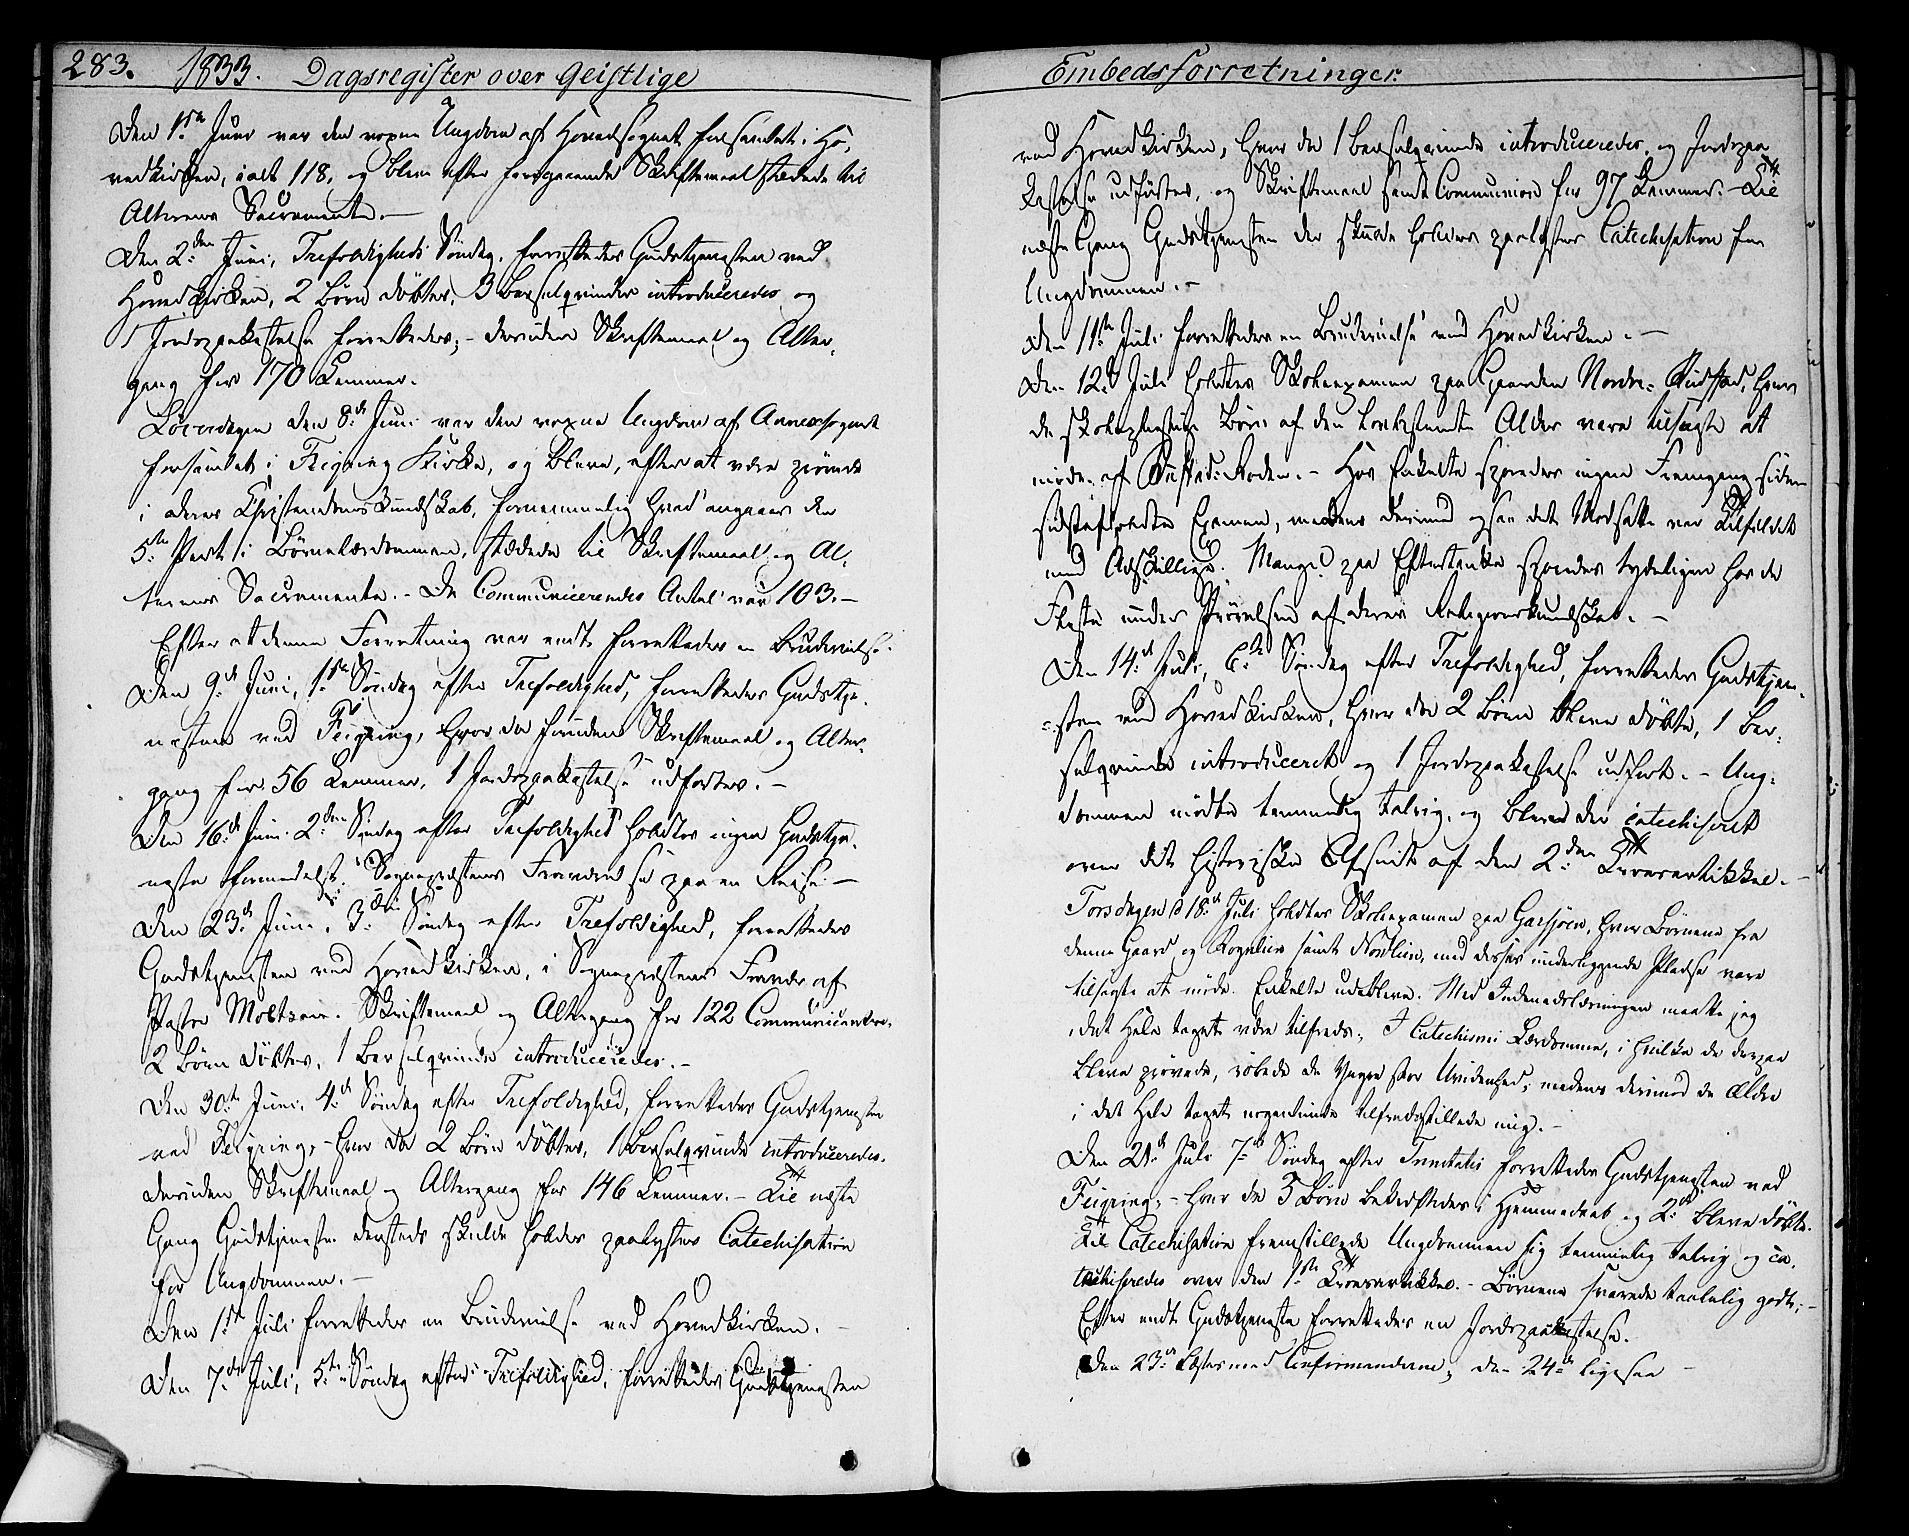 283. 1833. Dagsregister over Geistlige
Den 1ste Juni var den voxne Ungdom af Hovedsognet forsamlet i Ho-
vedkirken, ialt 118, og bleve efter foregaaende Skriftemaal stedede til
Alterens Sacramente. —
Den 2den Juni, Trefoldigheds Søndag, forrettedes Gudstjenesten ved
Hovedkirken, 2 Børn døbtes, 3 Barselqvinder introduceredes og
Jordspaakastelse forrettedes; – desuden Skriftemaal og Alter-
gang for 170 Lemmer.
Løverdagen den 8de Juni var den voxne Ungdom af Annexsognet
forsamlet i Feigring Kirke, og bleve, efter at være prøvede
i deres Christendomskundskab, fornemmelig hvad angaaer den
5te Part i Børnelærdommen, stædede til Skriftemaal og Al-
terens Sacramente. – De Communicerendes Antal var 103. –
Efter at denne Forretning var endt forrettedes en Brudevielse.
Den 9de Juni, 1ste Søndag efter Trefoldighed, forrettedes Gudstje-
nesten ved Feigring, hvor da foruden Skriftemaal og Alter-
gang for 56 Lemmer, 1 Jordspaakastelse udførtes. –
Den 16de Juni 2den Søndag efter Trefoldighed holdtes ingen Gudstje-
neste formedelst Sognepræstens Fraværelse paa en Reise –
Den 23de Juni, 3die Søndag efter Trefoldighed, forrettedes
Gudstjenesten ved Hovedkirken, i Sognepræstens Fravær af
Pastor Moltzau. Skriftemaal og Altergang for 122 Communicentere.
2 Børn døbtes, 1 Barselqvinde introduceredes. –
Den 30te Juni, 4de Søndag efter Trefoldighed, forrettedes Gudstjenesten
ved Feigring, – hvor da 2 Børn døbtes, 1 Barselqvinde introduceredes.
desuden Skriftemaal og Altergang for 146 Lemmer. – Til næste
Gang Gudstjeneste densteds skulde holdes paalystes Catechisation
for Ungdommen. –
Den 1ste Juli forrettedes en Brudevielse ved Hovedkirken. –
Den 7de Juli, 5te Søndag efter Trefoldighed, forrettedes Gudstjenesten
Embedsforretninger.
ved Hovedkirken, hvor da 1 Barselqvinde introduceredes, og Jordspaa-
kastelse udførtes, og Skriftemaal samt Communion for 97 Lemmer. – Til
næste Gang Gudstjenesten der skulde holdes paalystes Catechisation for
Ungdommen. –
Den 11te Juli forrettedes en Brudevielse ved Hovedkirken. –
Den 12te Juli holdtes Skoleexamen paa Gaarden Nordre- Rustad, hvor
de skolepligtige Børn af den lovbestemte Alder vare tilsagte at
møde af Rustad-Roden. – Hos Enkelte spordes ingen Fremgang siden
sidstafholdte Examen, medens derimod ogsaa det Modsatte var Tilfældet
med Adskillige. Mangel paa Eftertanke spordes tydeligen hos de
Fleste under Prøvelsen af deres Religionskundskab. –
Den 14de Juli, 6te Søndag efter Trefoldighed, forrettedes Gudstjene-
sten ved Hovedkirken, hvor da 2 Børn bleve døbte, 1 Bar-
selqvinde introduceret og 1 Jordspaakastelse udført. – Ung-
dommen mødte temmelig talrig, og bleve der catechiseret
over det historiske Afsnit af den 2den Troesartikkel. –
Torsdagen d 18de Juli holdtes Skoleexamen paa Garsjøen, hvor Børnene fra
denne Gaard og Rognlien samt Nordlien, med disses underliggende Pladse vare
tilsagte at møde. Enkelte udebleve. Med Indenadslæsningen maatte jeg
i det Hele taget være tilfreds; I Catechismi Lærdomme, i hvilke de derpaa
bleve prøvede, røbede de Yngre stor Uvidenhed; medens derimod de Ældre
i det Hele taget nogenlunde tilfredsstillede mig. –
Den 21de Juli 7de Søndag efter Trinitatis forrettedes Gudstjenesten ved
Feigring, – hvor da 3 Børn bekræftedes i Hjemmedaab og 2de bleve døbte.
Til Catechisation fremstillede Ungdommen sig temmelig talrig og ca-
techiseredes over den 1ste Troesartikkel. – Børnene svarede taalelig godt; –
Efter endt Gudstjeneste forrettedes en Jordspaakastelse.
Den 23de læstes med Confirmanderne; den 24de ligesaa –